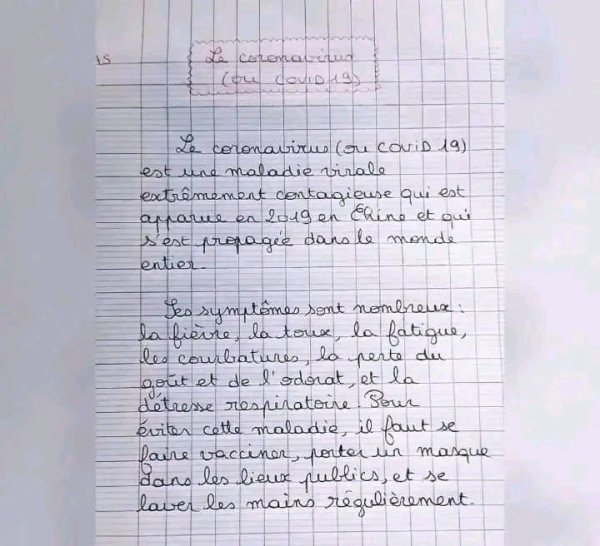 15
Le coronavirus
(ou covid 19)
Le coronavirus (ou covid 19)
est une maladie virale
extrêmement contagieuse qui est
apparue en 2019 en Chine et qui
s'est propagée dans le monde
entier.
Les symptômes sont nombreux :
la fièvre, la toux, la fatigue,
les courbatures, la perte du
goût et de l'odorat, et la
détresse respiratoire. Pour
éviter cette maladie, il faut se
faire vacciner, porter un masque
dans les lieux publics, et se
laver les mains régulièrement.